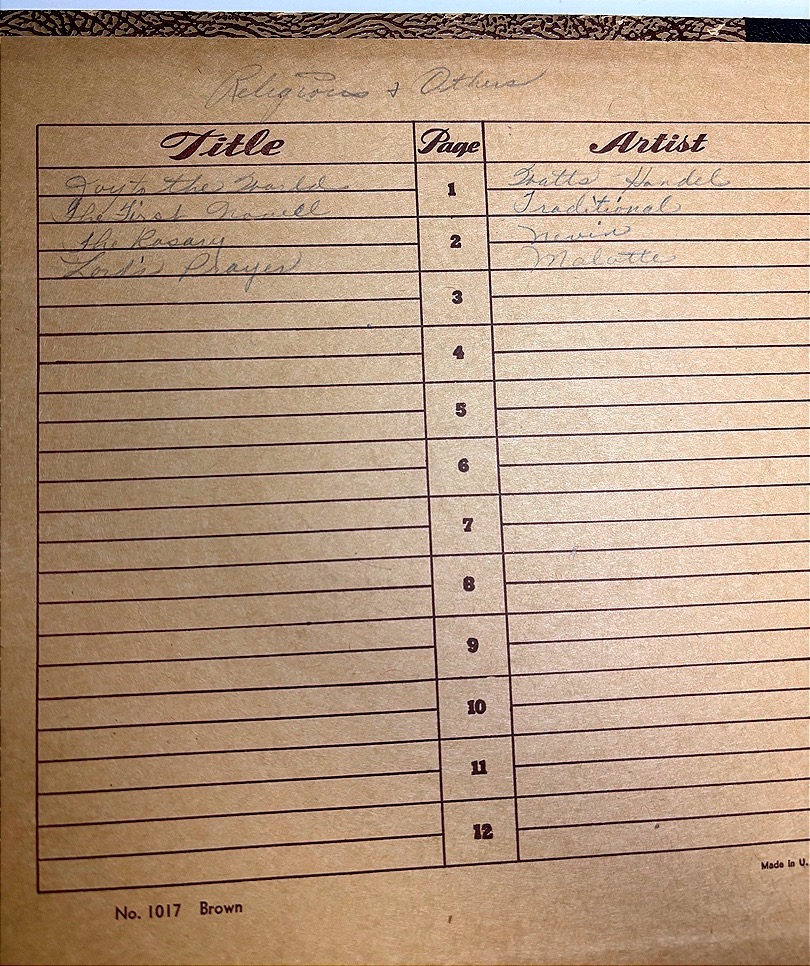 Religious & Others
Title Page Artist
Joy to the World 1 Watts Handel
The First Nowell Traditional
The Rosary 2 Nevin
Lord's Prayer Malotte
3
4
5
6
7
8
9
10
11
12
Made in U.
No. 1017 Brown